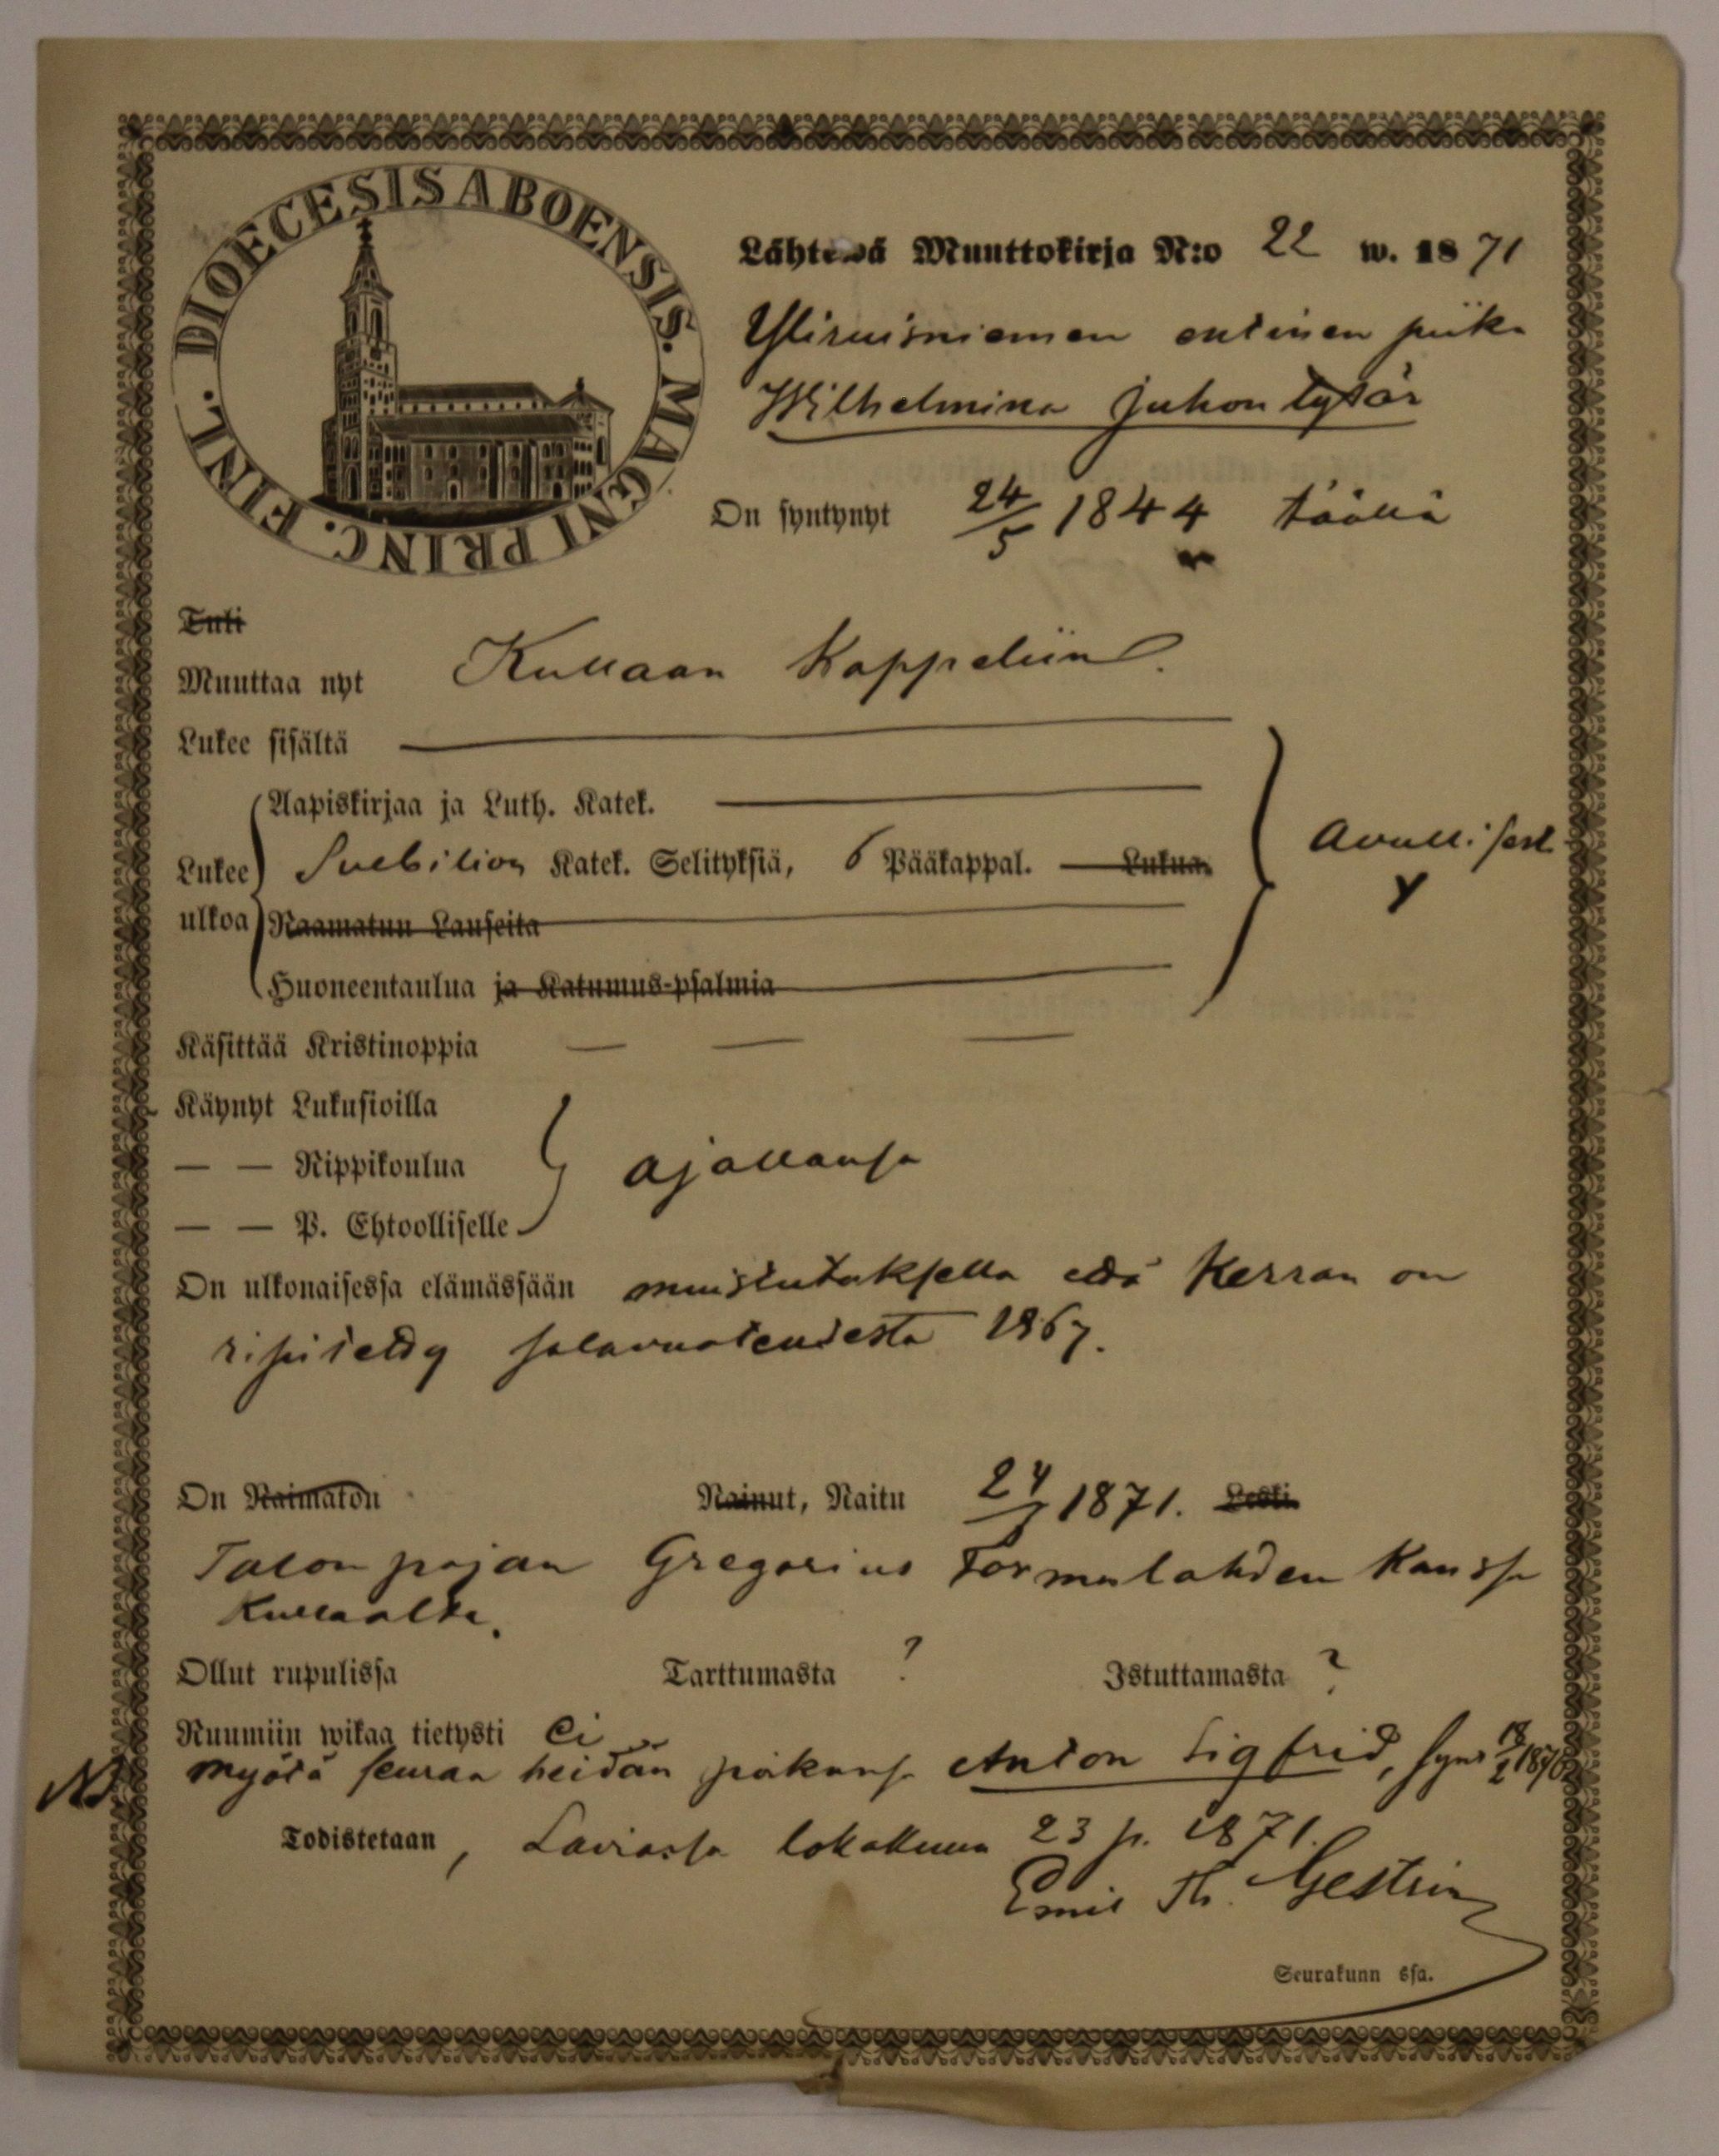 DIOECESIS ABOENSIS. MAGNI PRINC. FINL.
Lähtewä Muuttokirja N:o 22 w. 1871
Yliruisniemen entinen piika
Wilhelmina Juhon tytär
On syntynyt 24/5 1844 täällä
Tuli
Muuttaa nyt Kullaan Kappeliin.
Lukee sisältä
Aapiskirjaa ja Luth. Katek.
Lukee ulkoa Svebilion Katek. Selityksiä, 6 Pääkappal. Lukua. avullisest.
Raamatun Lauseita
Huoneentaulua ja Katumus-psalmia
Käsittää Kristinoppia — — —
Käynyt Lukusioilla
— — Rippikoulua ajallansa
— — P. Ehtoolliselle
On ulkonaisessa elämässään muistutuksella että Kerran on
ripitetty salavuoteudesta 1867.
On Naimaton Nainut, Naitu 1871. Leski.
Talonpojan Gregorius Tormulahden Kanssa
Kullaalta.
Ollut rupulissa Tarttumasta ? Istuttamasta ?
Ruumiin wikaa tietysti Ei
myötä seuraa heidän poikansa Anton Sigfrid, synt
Todistetaan, Laviassa lokakuun 23 p. 1871.
Emil Th. Gestrin
Seurakunn ssa.